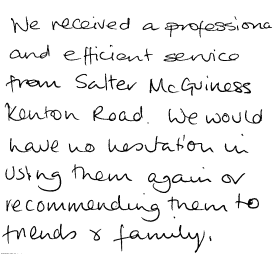 We received a professiona
and efficient service
from Salter McGuiness
Kenton Road. We would
have no hesitation in
using them again or
recommending them to
friends & family.